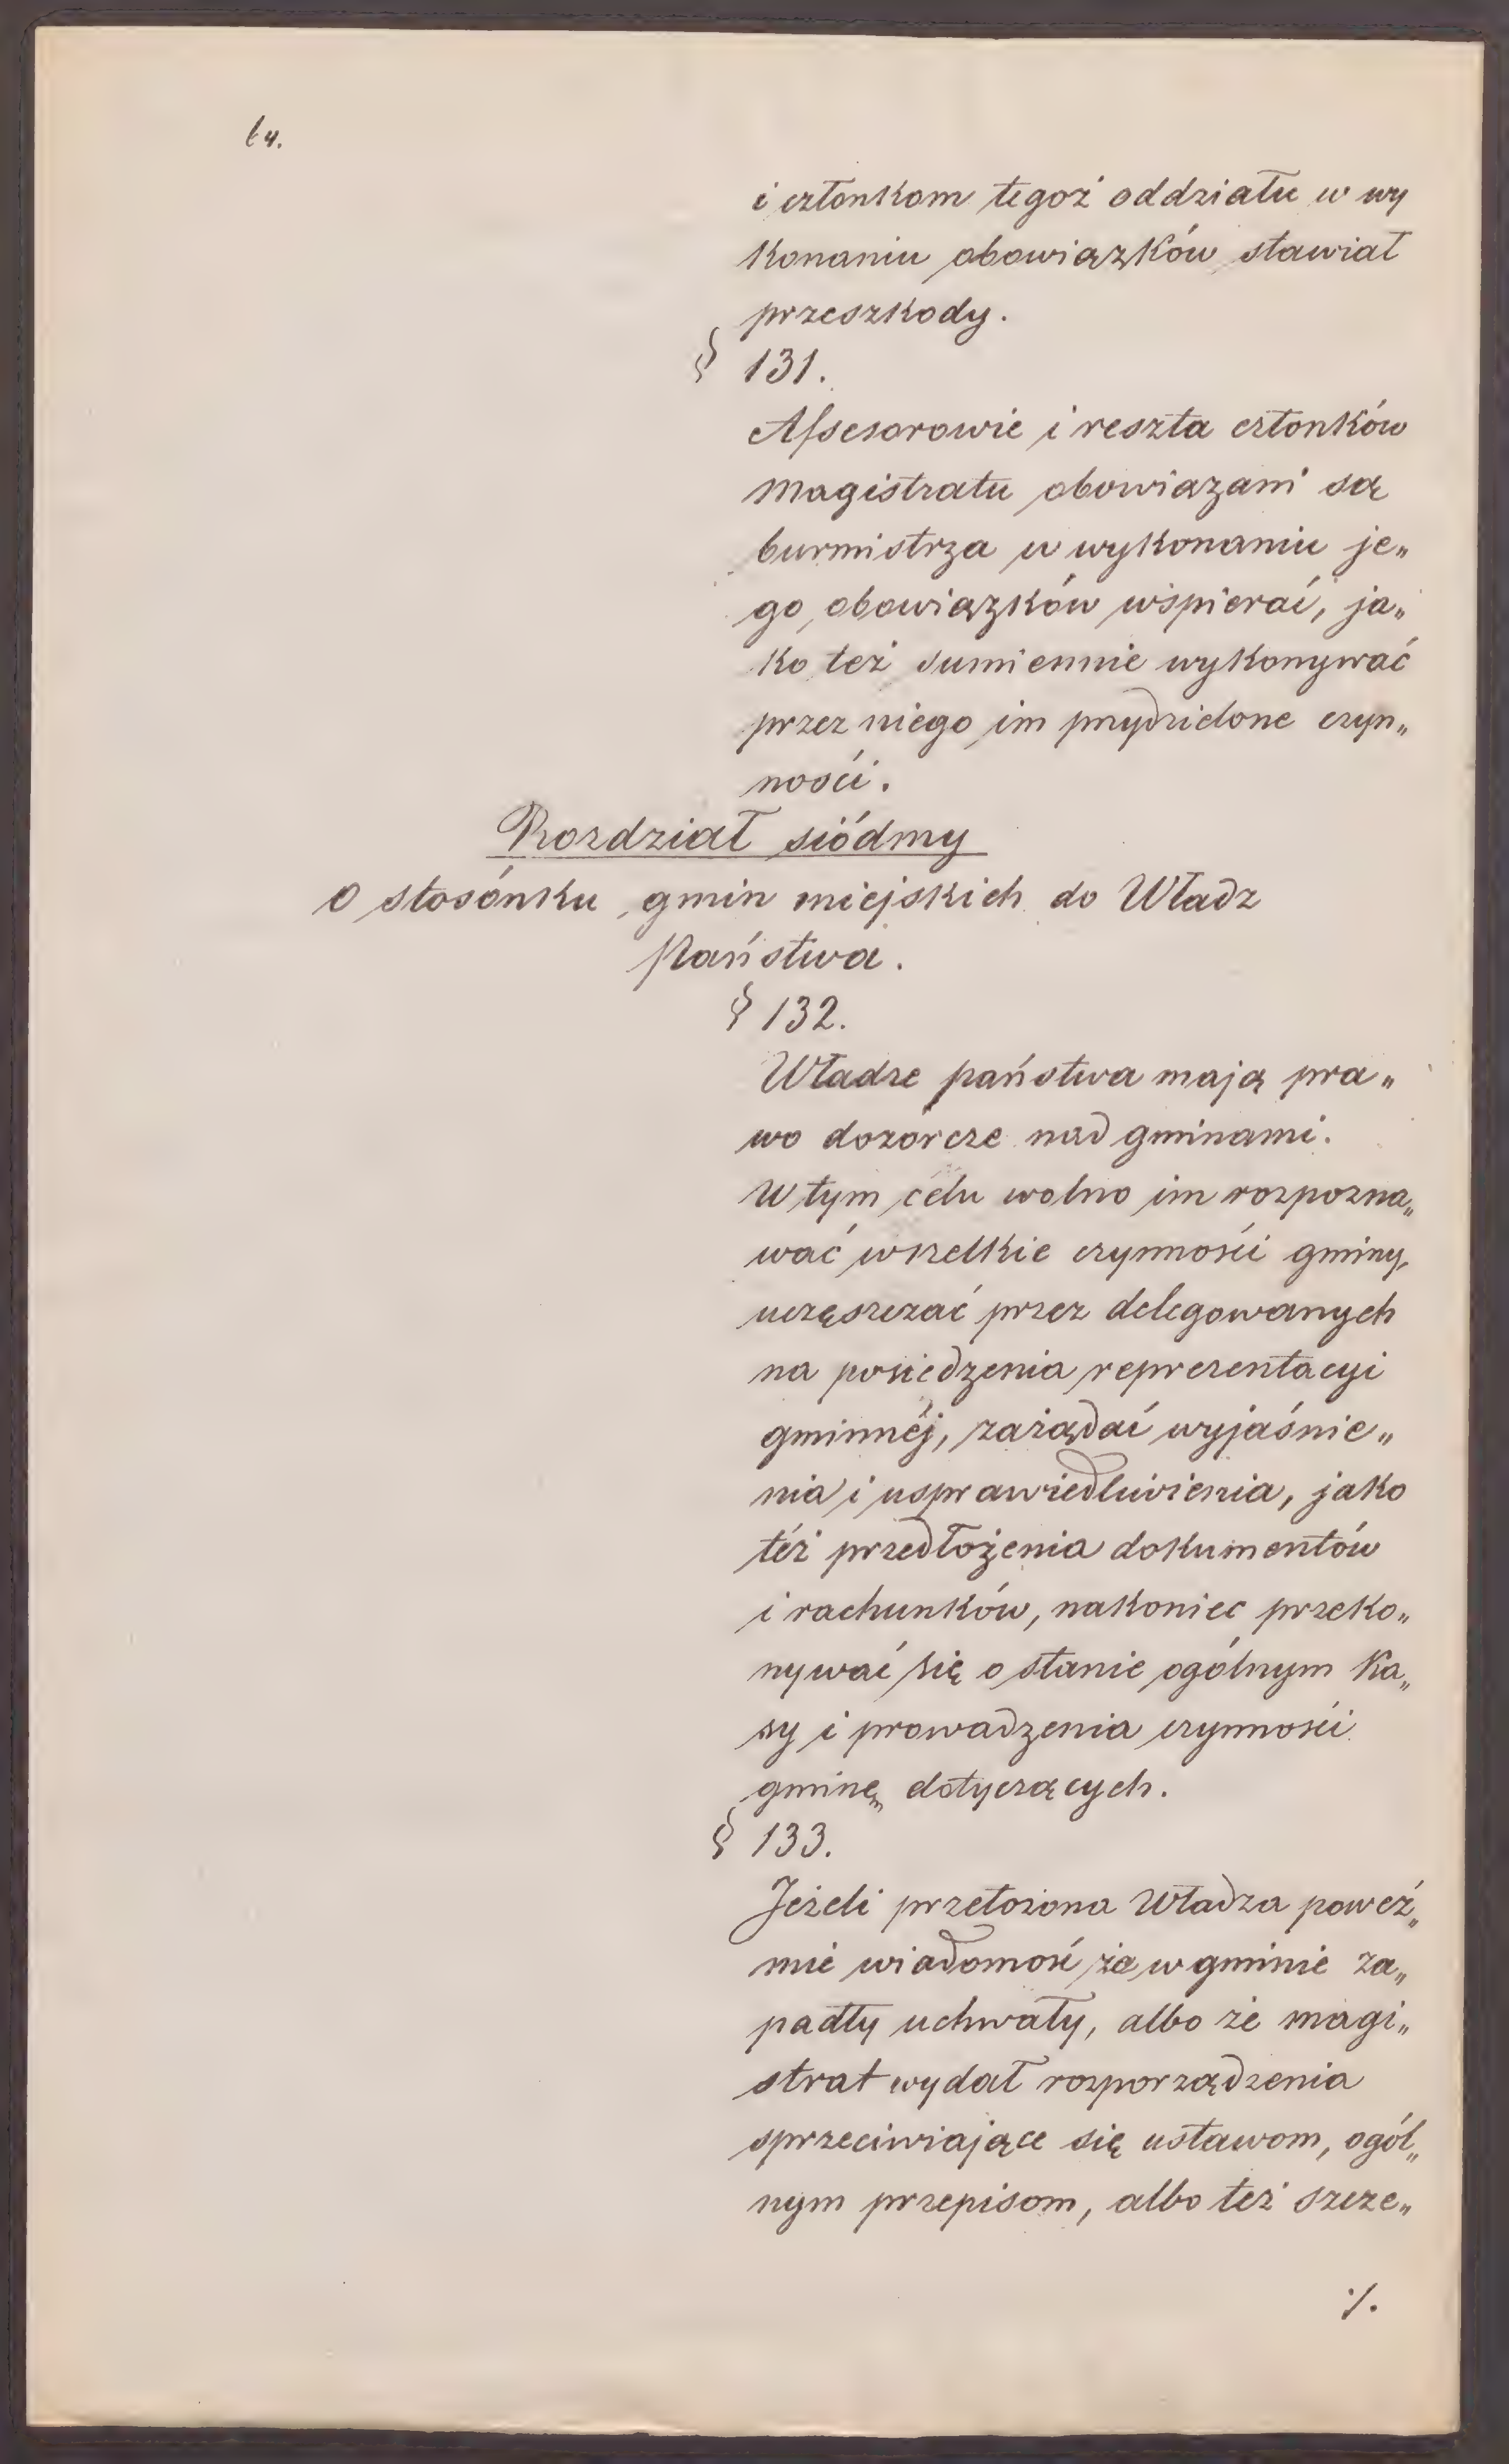 64.
i członkom tegoż oddziału w wy
konaniu obowiązków stawiał
przeszkody.
§ 131.
Assesorowie i reszta członków
magistratu obowiązani są
burmistrza w wykonaniu je„
go obowiązków wspierać, ja„
ko też sumiennie wykonywać
przez niego im przydzielone czyn„
ności.
Rozdział siódmy
O stosónku gmin miejskich do Władz
Państwa.
§ 132.
Władze państwa mają pra„
wo dozorcze nad gminami.
W tym celu wolno im rozpozna„
wać wszelkie czynności gminy,
uczęszczać przez delegowanych
na posiedzenia reprezentacyi
gminnéj, zażądać wyjaśnie„
nia i usprawiedliwienia, jako
téż przedłożenia dokumentów
i rachunków, nakoniec przeko„
nywać się o stanie ogólnym Ka„
sy i prowadzenia czynności
gminę dotyczących.
§ 133.
Jeżeli przełożona Władza poweź„
mie wiadomość że w gminie za„
padły uchwały, albo że magi„
strat wydał rozporządzenia
sprzeciwiające się ustawom, ogól„
nym przepisom, albo też szcze„
./.